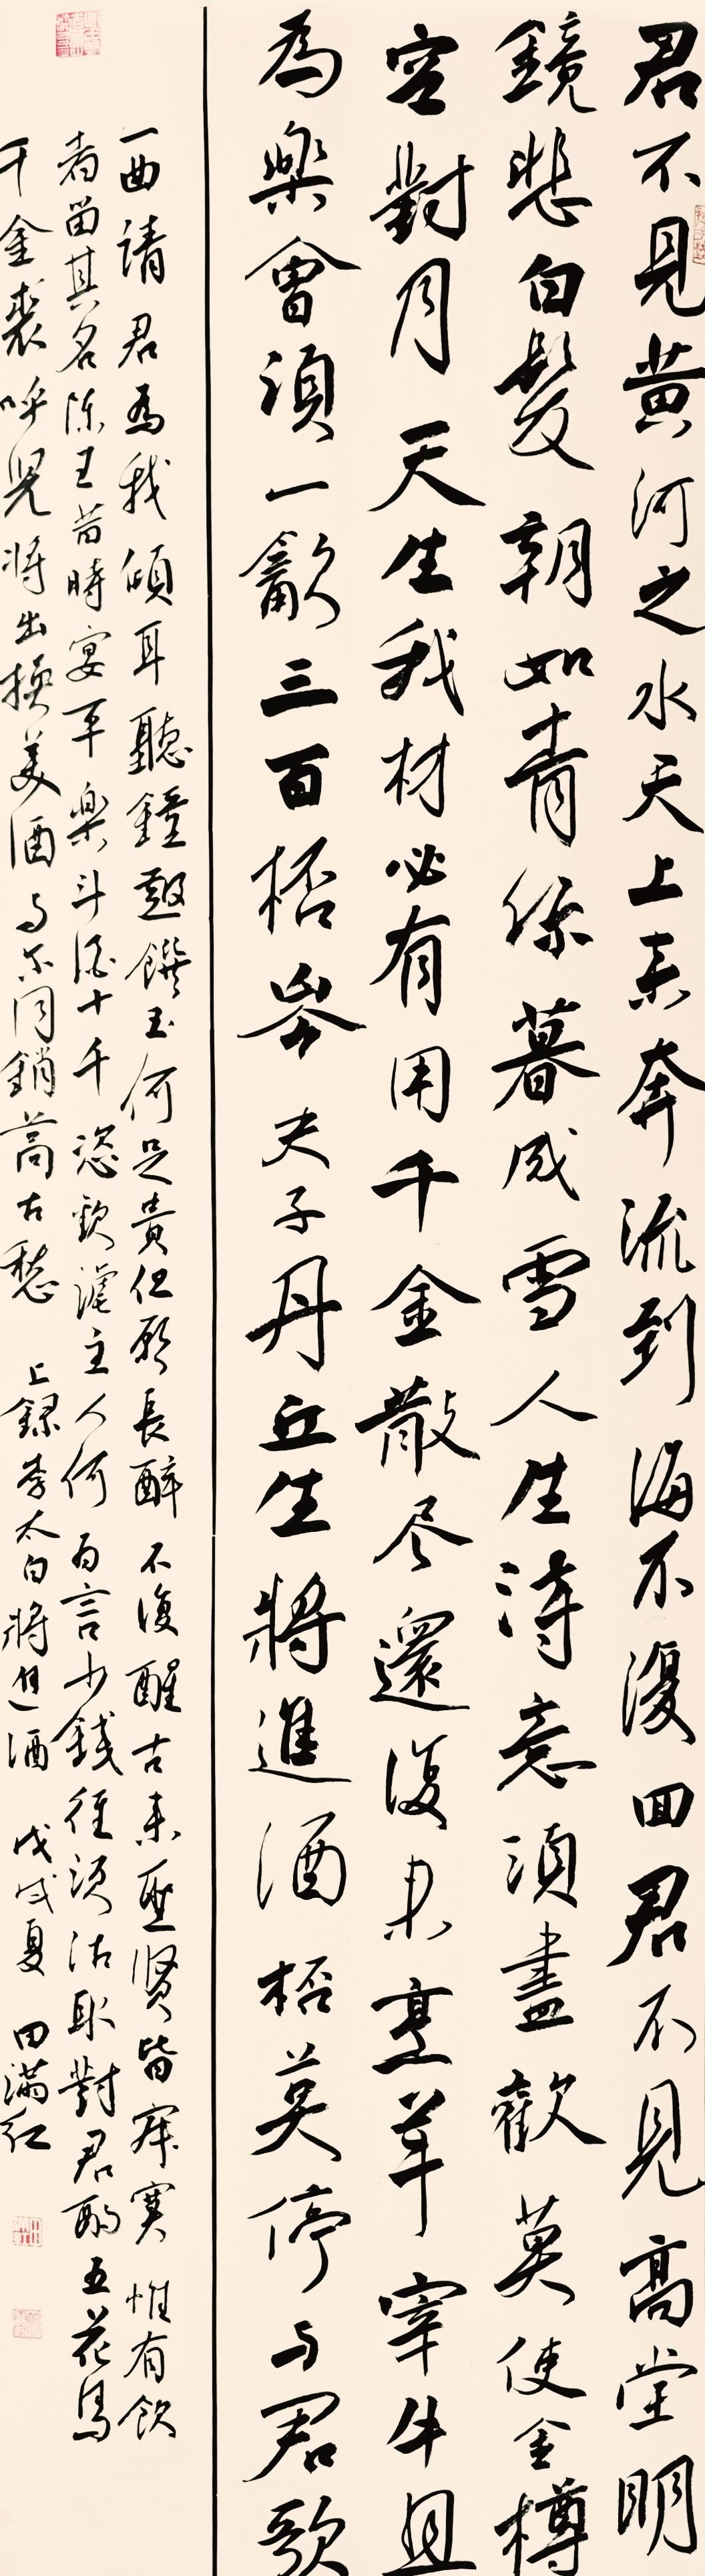 君不見黄河之水天上来奔流到海不復回君不見高堂明
鏡悲白髮朝如青絲暮成雪人生得意須盡歡莫使金樽
空對月天生我材必有用千金散尽還復来烹羊宰牛且
為樂會須一飲三百杯岑夫子丹丘生將進酒杯莫停与君歌
一曲請君為我傾耳聽鐘鼓饌玉何足貴但願長醉不復醒古来聖賢皆寂寞惟有飲
者留其名陳王昔時宴平樂斗酒十千恣歡謔主人何為言少錢徑須沽取對君酌五花馬
千金裘呼児将出換美酒与尔同銷萬古愁 上録李太白將進酒 戊戌夏 田滿红